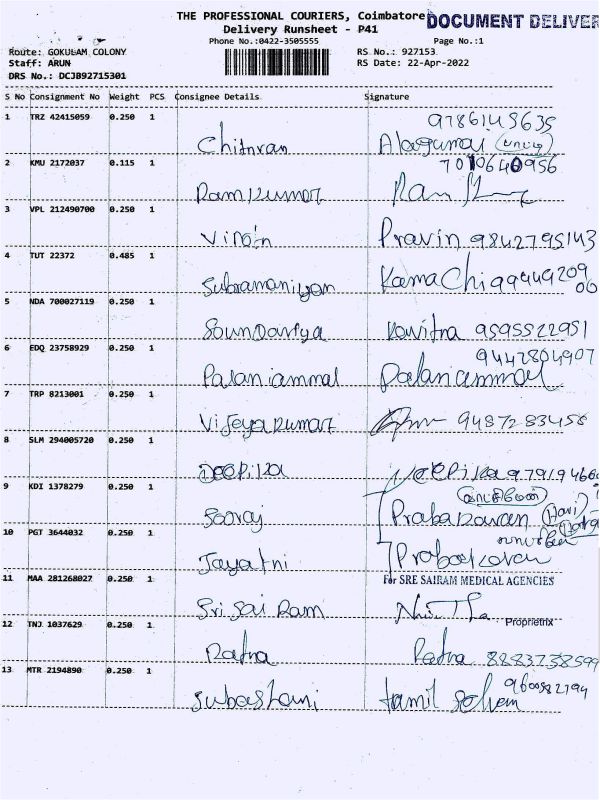 THE PROFESSIONAL COURIERS, Coimbatore
DOCUMENT DELIVER
Delivery Runsheet - P41
Phone No.:0422-3505555
Page No.:1
Route: GOKULAM COLONY
RS No.: 927153
Staff: ARUN
RS Date: 22-Apr-2022
DRS No.: DCJB92715301
S No Consignment No Weight PCS Consignee Details Signature
1 TRZ 42415059 0.250 1
9786145635
Chitnran Alagumai
2 KMU 2172037 0.115 1
7010640956
Ramkumar Ram
3 VPL 212490700 0.250 1
Pravin 9842795143
4 TUT 22372 0.485 1
Subramaniyam Kamachi 99449209
00
5 NDA 700027119 0.250 1
Soundariya Kavitna 9595522951
6 EDQ 23758929 0.250 1
9442804907
Palaniammal Palaniammal
7 TRP 8213001 0.250 1
Vijeyakumar 9487283456
8 SLM 294005720 0.250 1
Deepika Deepika 979194660
9 KDI 1378279 0.250 1
Sooraj Prabakaran (Hari)
10 PGT 3644032 0.250 1
Jayatni Prabakaran
11 MAA 281268027 0.250 1
For SRE SAIRAM MEDICAL AGENCIES
Sri Sai Ram
Proprietrix
12 TNJ 1037629 0.250 1
Ratna Ratna 8883738599
13 MTR 2194890 0.250 1
9600582194
Subashani Tamil Selvem